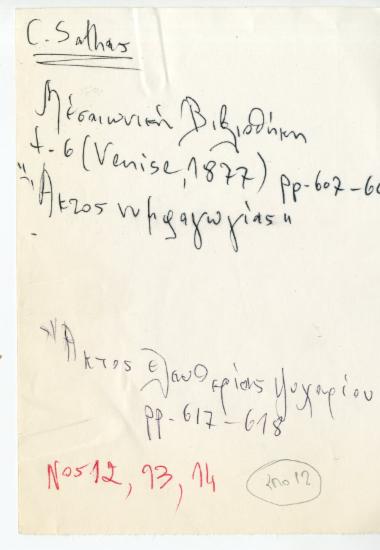 C. Sathas
Μεσαιωνική Βιβλιοθήκη
t. 6 (Venise, 1877) pp. 607-60
"Άκτος νυμφαγωγίας"
"Άκτος ελευθερίας ψυχαρίου
pp. 617-618
Nos 12, 13, 14